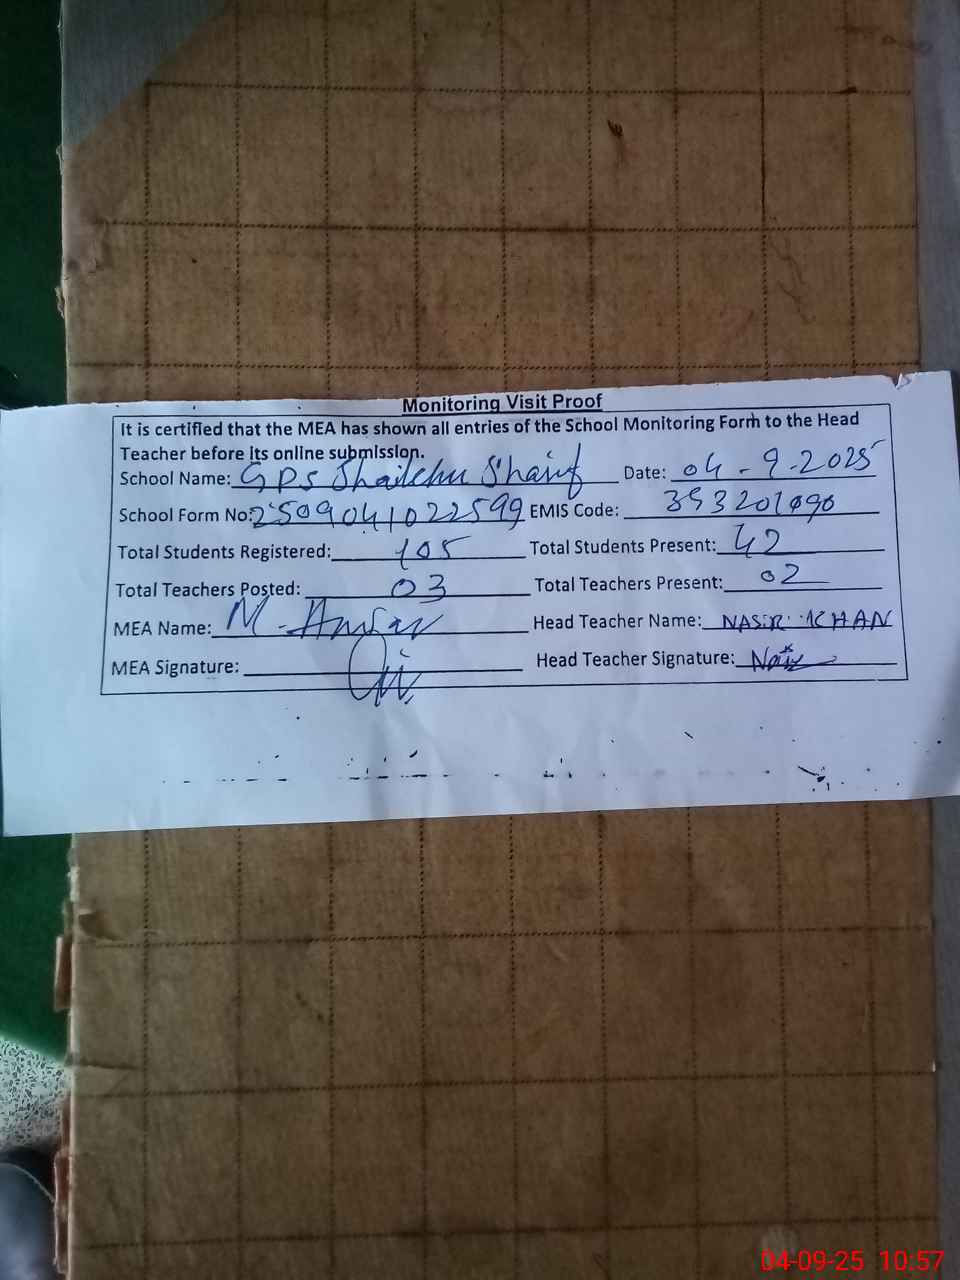 Monitoring Visit Proof
It is certified that the MEA has shown all entries of the School Monitoring Form to the Head
Teacher before its online submission.
School Name: GPS Shaikhu Sharif Date: 04-9-2025
School Form No: 2509041022599 EMIS Code:
Total Students Registered: 105 Total Students Present: 42
Total Teachers Posted: 03 Total Teachers Present: 02
MEA Name: M. Head Teacher Name: NASIR KHAN
MEA Signature: Head Teacher Signature:
04-09-25 10:57